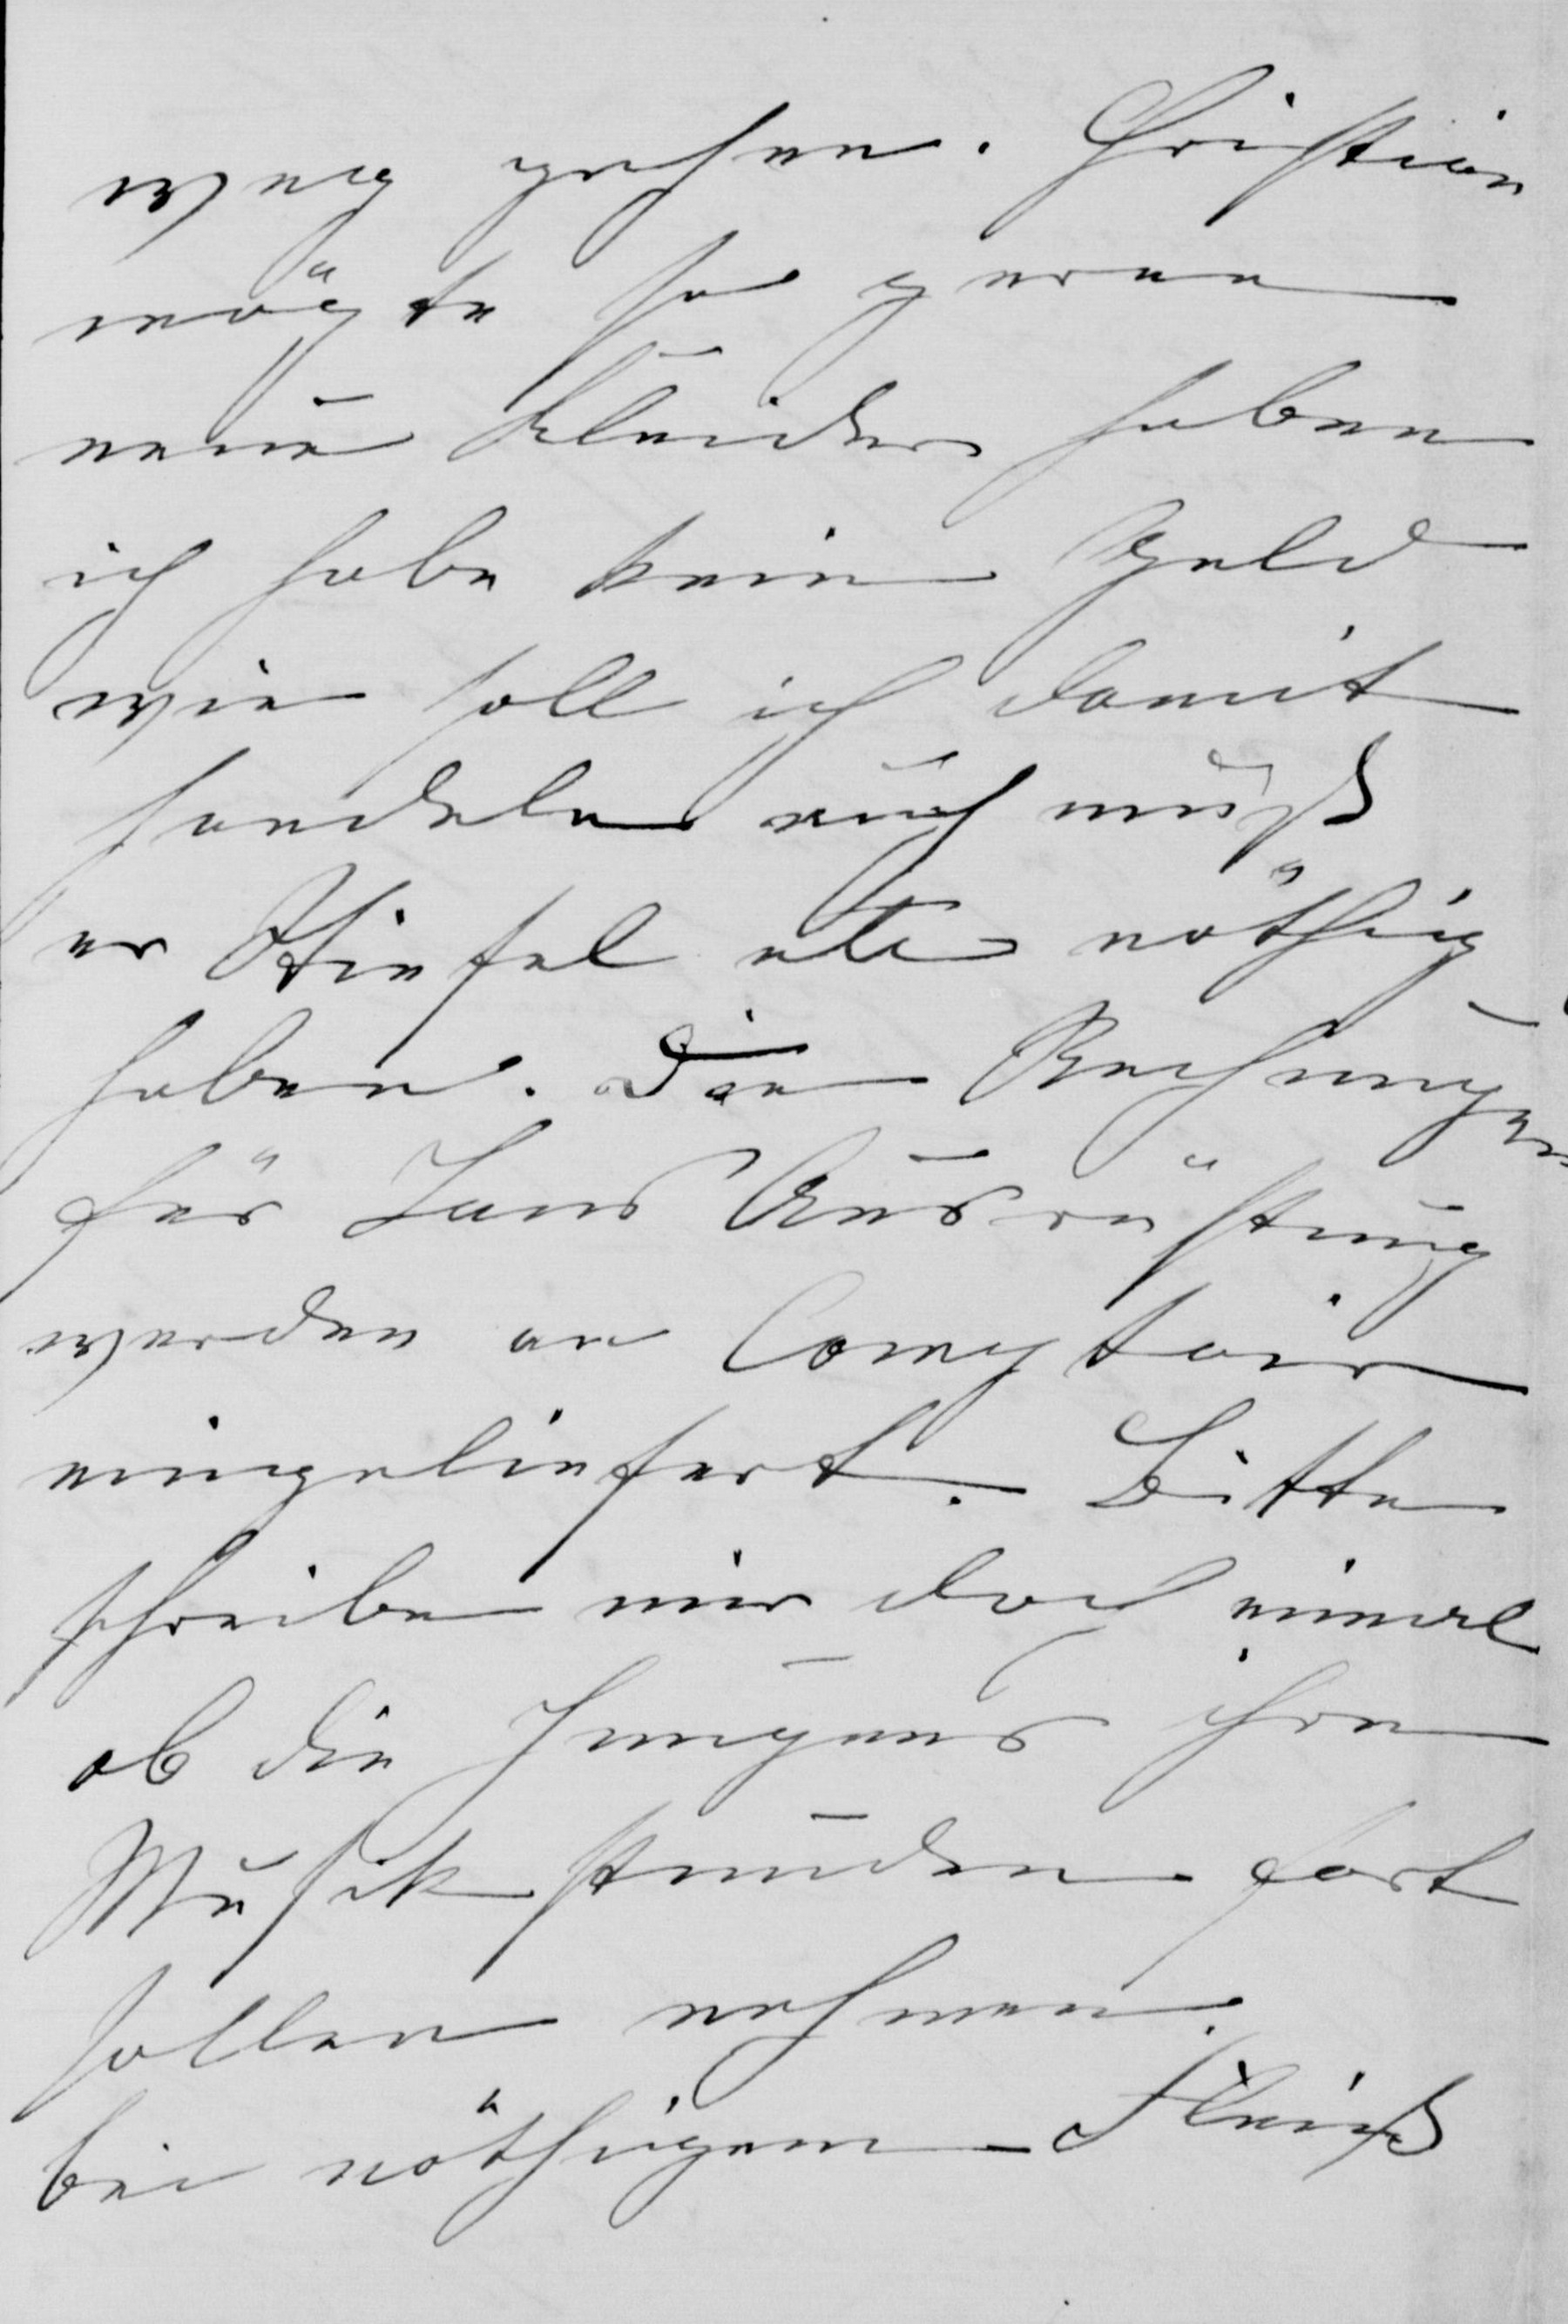 weg gehen. Christian
mögte so gerne
neue Kleider haben
ich habe kein Geld
wie soll ich damit
handeln auch muß
er Stiefel etc nöthig
haben. Die Rechnungen
für Jans Ausrüstung
werden an Comptoir
eingeliefert. Bitte
schreibe mir doch einmal
ob die Jungens ihre
Musikstunden fort
sollen nehmen.
bei nöthigem Fleiß